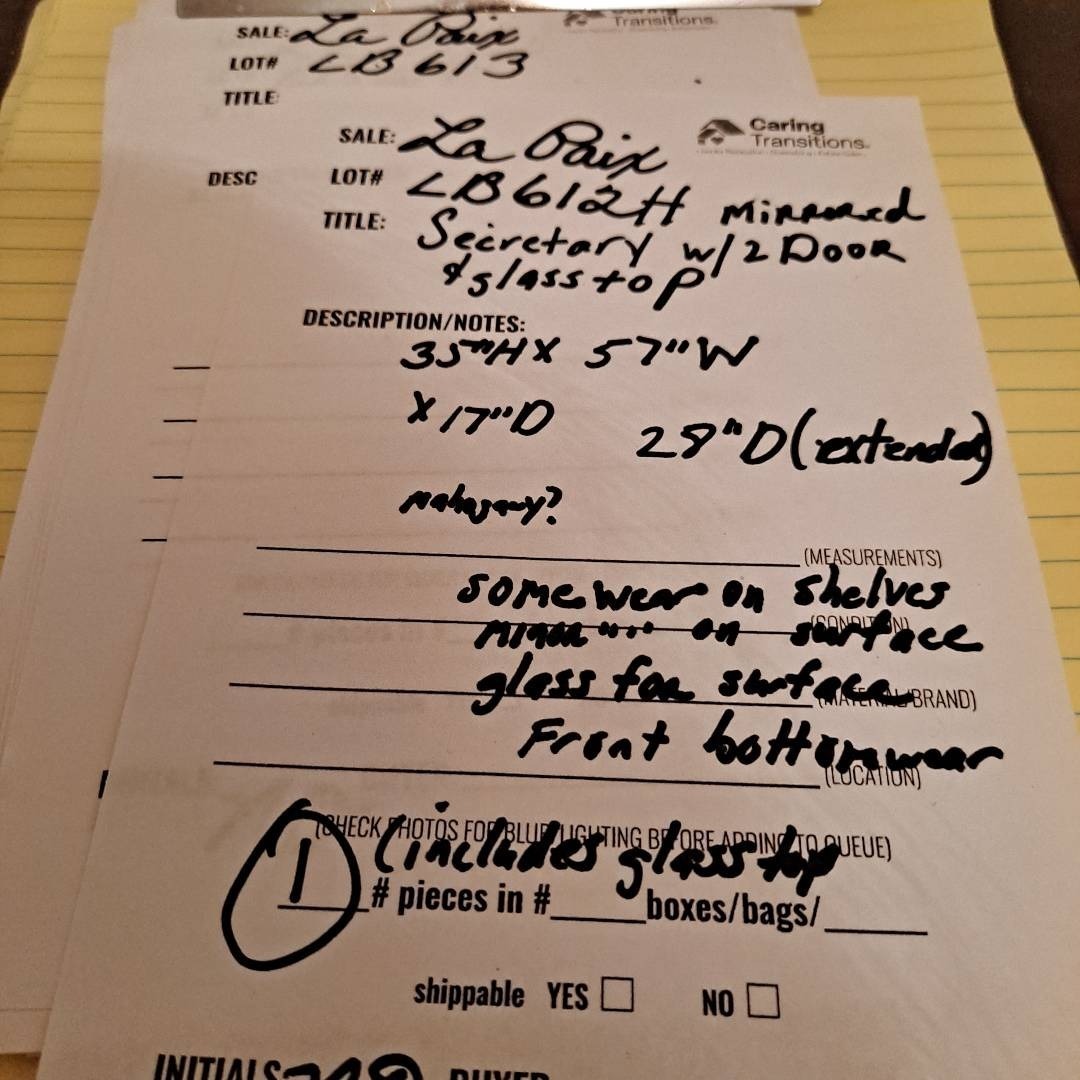 SALE: La Paix
Transitions.
LOT# LB 613
TITLE
DESC
Caring
Transitions.
SALE: La Paix
LOT# LB612H Mirrored
TITLE: Secretary w/2 Door
& glass top
DESCRIPTION/NOTES:
35"H X 57"W
X 17"D
28"D (extended)
Mahogany?
(MEASUREMENTS)
some wear on shelves
(CONDITION)
minor "" on surface
glass for surface
(MATERIAL/BRAND)
Front bottom wear
(LOCATION)
(CHECK PHOTOS FOR BLUE LIGHTING BEFORE ADDING TO QUEUE)
1 (includes glass top
# pieces in #____boxes/bags/____
shippable YES □ NO □
INITIALS BUYER